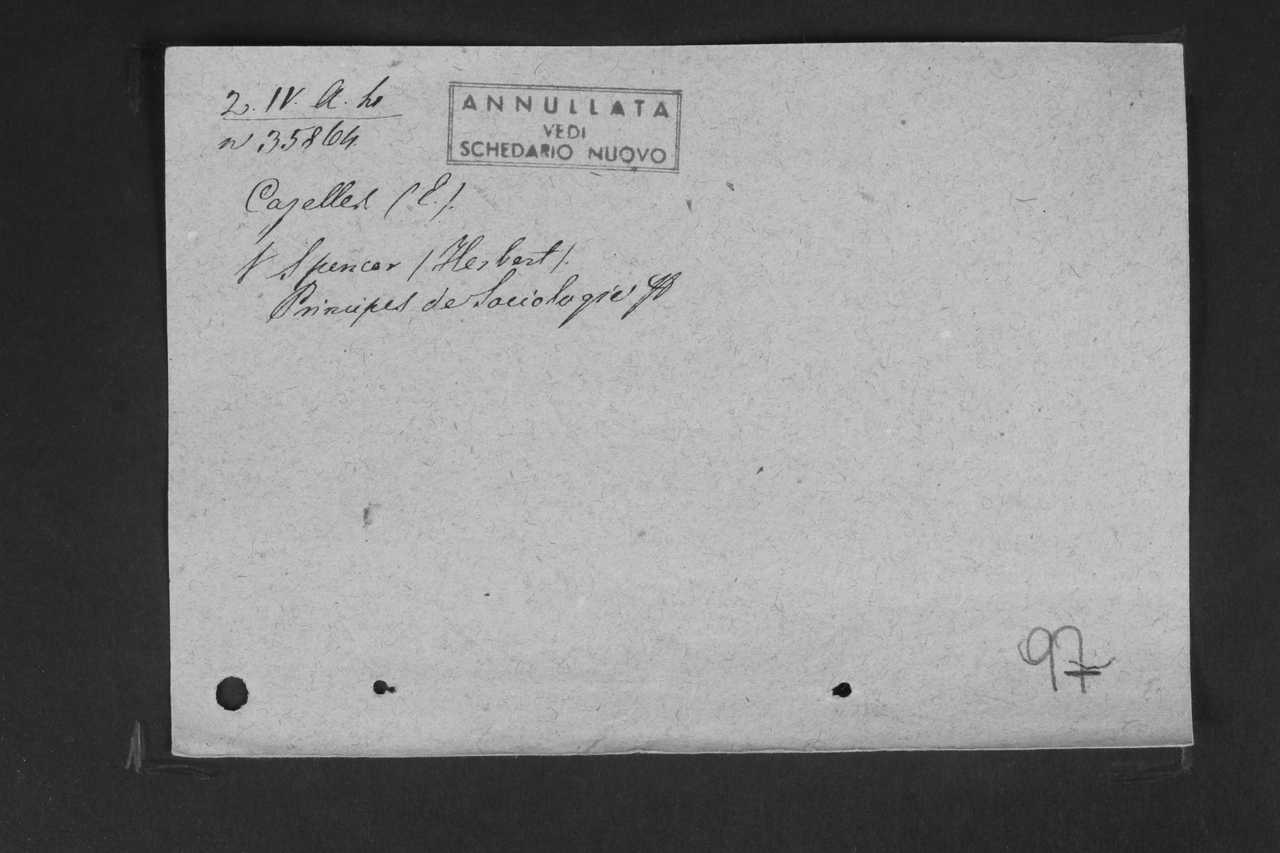 2. IV. A. h
n 35864
ANNULLATA
VEDI
SCHEDARIO NUOVO
Cazelles (E).
V Spencer (Herbert).
Principes de Sociologie
97